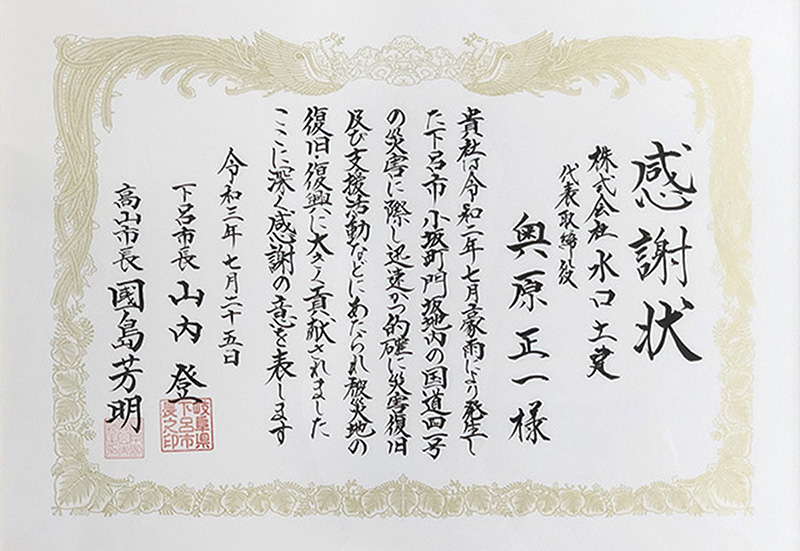 感謝状
株式会社水口土建
代表取締役
奥原正一様
貴社は令和二年七月豪雨により発生し
た下呂市小坂町門坂地内の国道四一号
の災害に際し迅速かつ的確に災害復旧
及び支援活動などにあたられ被災地の
復旧・復興に大きく貢献されました
ここに深く感謝の意を表します
令和三年七月二十五日
下呂市長 山内登
岐阜県
下呂市
長之印
高山市長 國島芳明